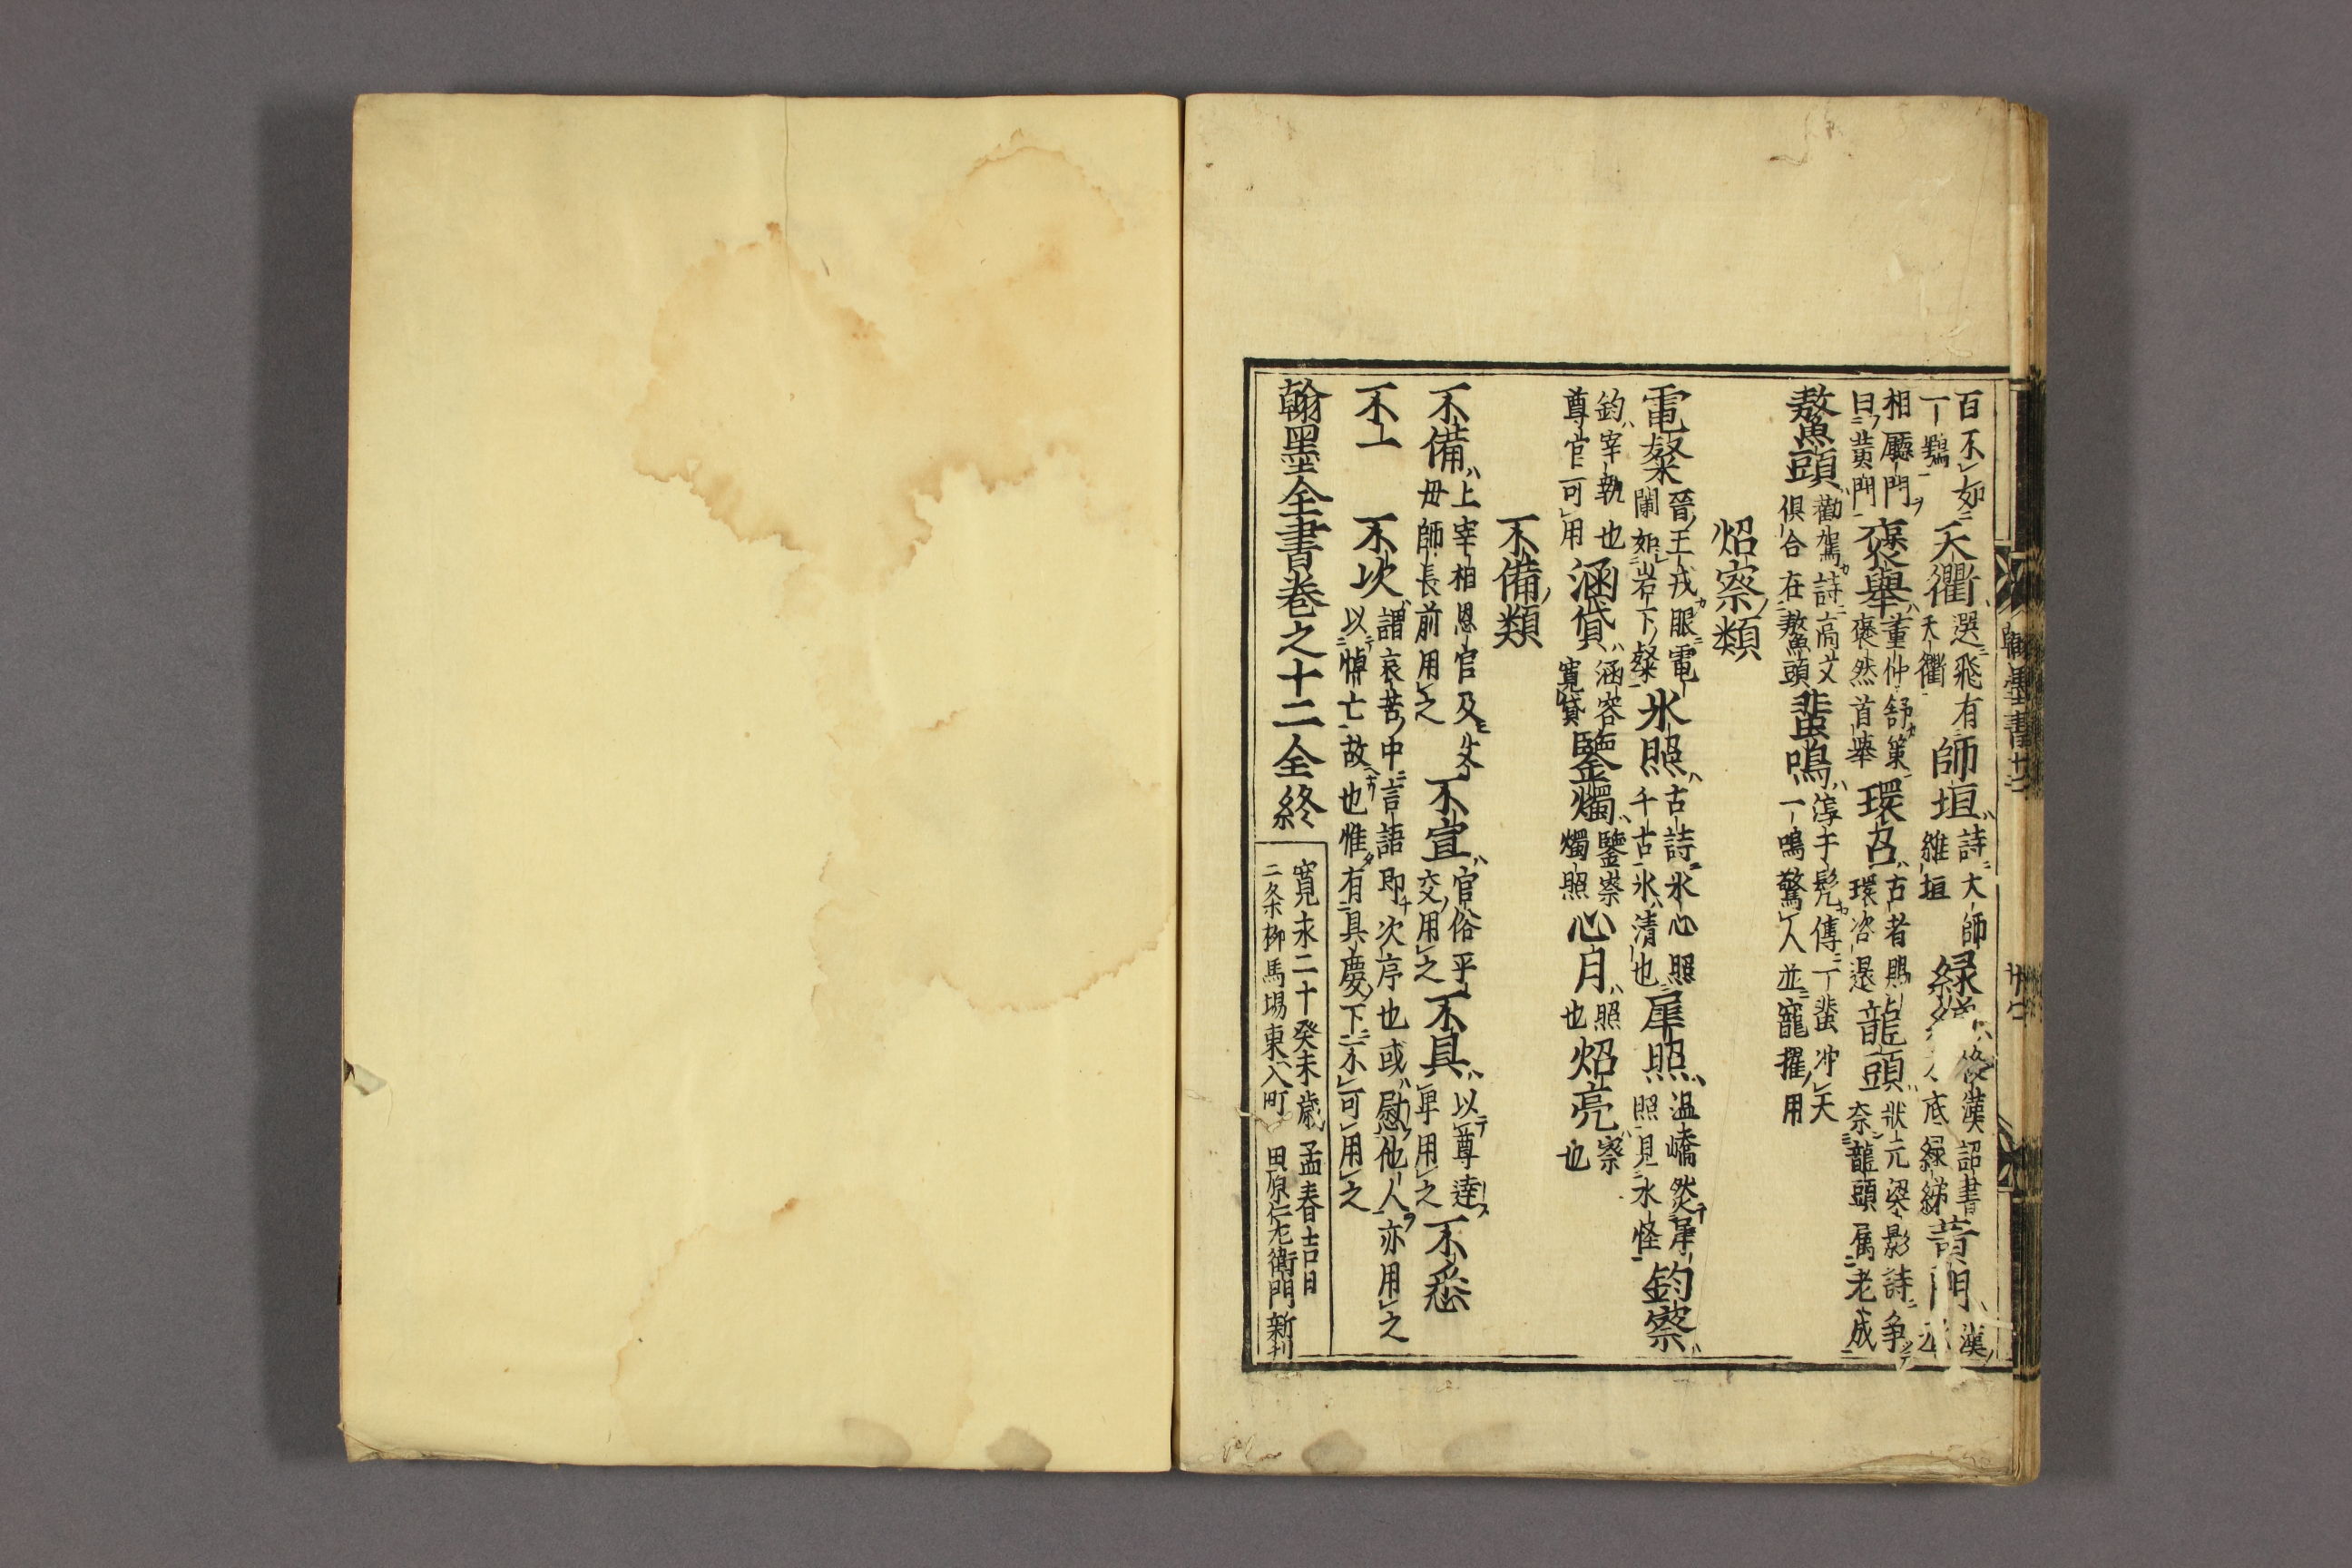 百不如天衢選飛有天衢師垣詩大師維垣緑 後漢詔書 底緑綈黄門漢
一鶚
相廳門
曰黄門褒舉董仲舒策褒然首舉環召古者賜環召還龍頭狀元梁影詩爭奈龍頭屬老成
鼇頭勸駕詩高文俱合在鼇頭蜚鳴淳于髠傳一蜚冲天一鳴驚人並寵擢用
炤察類
電粲晉王戎眼電閘如岩下粲氷照古詩氷心照千古氷清也犀照温嶠燃犀照見水怪鈞察
鈞宰執也尊官可用涵貸涵容寛貸鑒燭鑒察燭照心月照也炤亮察也
不備類
不備上宰相恩官及父母師長前用之不宣官俗平交用之不具以尊達卑用之不悉
不一 不次謂哀苦中言語即次序也或慰他人亦用之以悼亡故也惟有具慶下不可用之
翰墨全書巻之十二全終
寛永二十癸未歳孟春吉日
二条柳馬場東入町 田原仁左衛門新刊
翰墨書十二